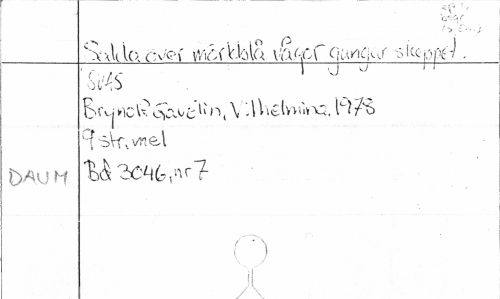 Sakta över mörkblå vågor gungar skeppet.
SVAS
Brynolf Gavelin, Vilhelmina, 1978
9 str, mel
DAUM Bd 3046, nr 7